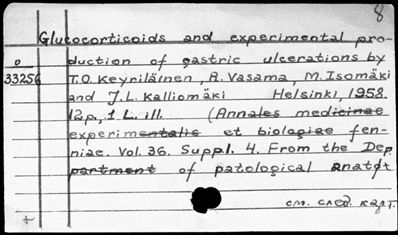 8
Glucocorticoids and experimental pro-
o duction of gastric ulcerations by
33256 T.O. Keyriläinen, A. Vasama, M. Isomäki
and J.L. Kalliomäki Helsinki, 1958.
12p., 1 L. ill. (Annales medicinae
experimentalis et biologiae fen-
niae. Vol. 36. Suppl. 4. From the Dep
partment of patological anatot
см. след. карт.
+